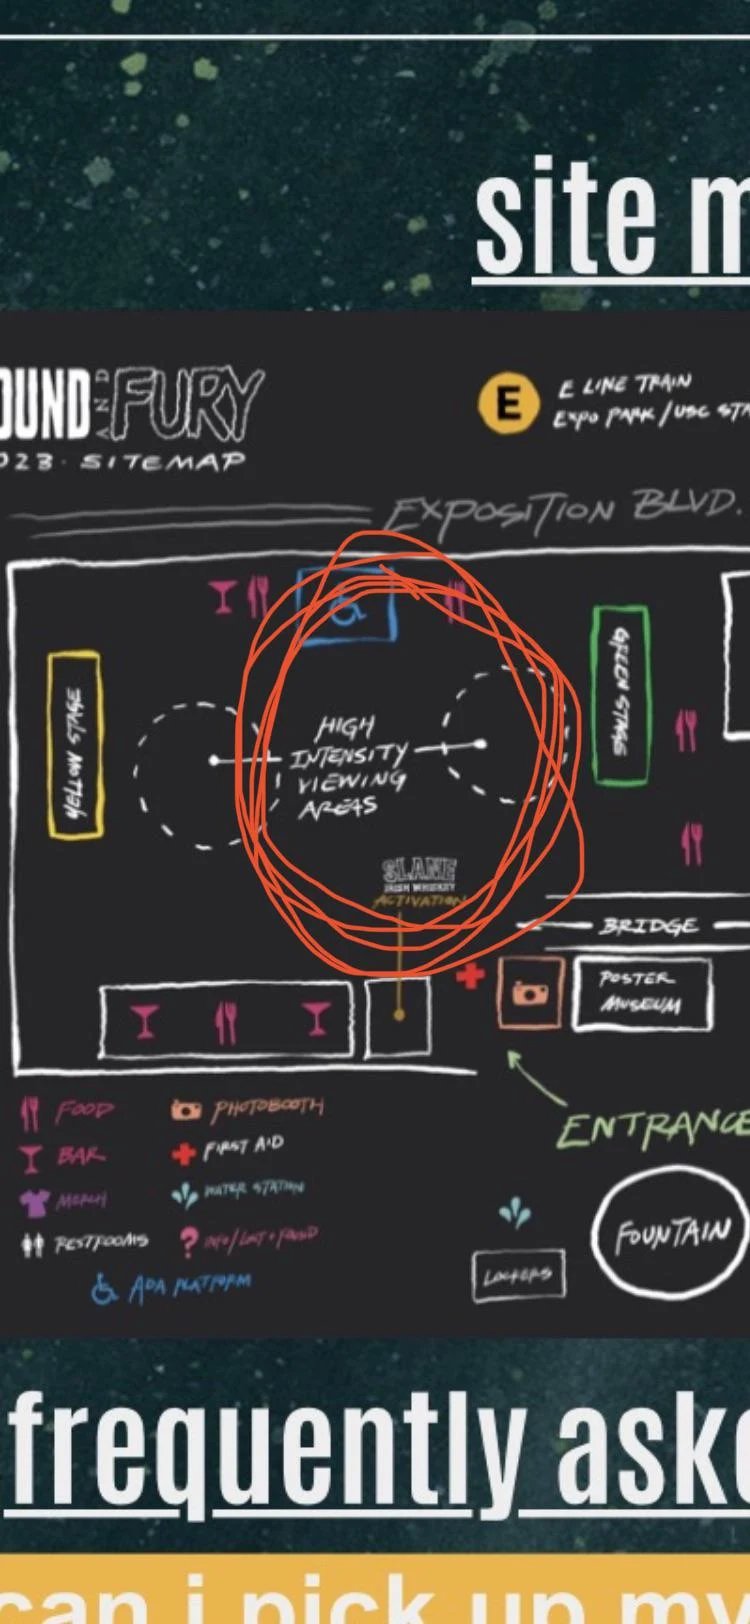 site m
OUND AND FURY
023 · SITEMAP
E
E LINE TRAIN
EXPO PARK / USC STA
EXPOSITION BLVD.
YELLOW STAGE
GREEN STAGE
HIGH
INTENSITY
VIEWING
AREAS
SLANE
IRISH WHISKEY
ACTIVATION
BRIDGE
POSTER
MUSEUM
ENTRANCE
FOOD
PHOTOBOOTH
BAR
FIRST AID
MERCH
WATER STATION
RESTROOMS
? INFO/LOST+FOUND
ADA PLATFORM
LOCKERS
FOUNTAIN
frequently aske
can i pick up my